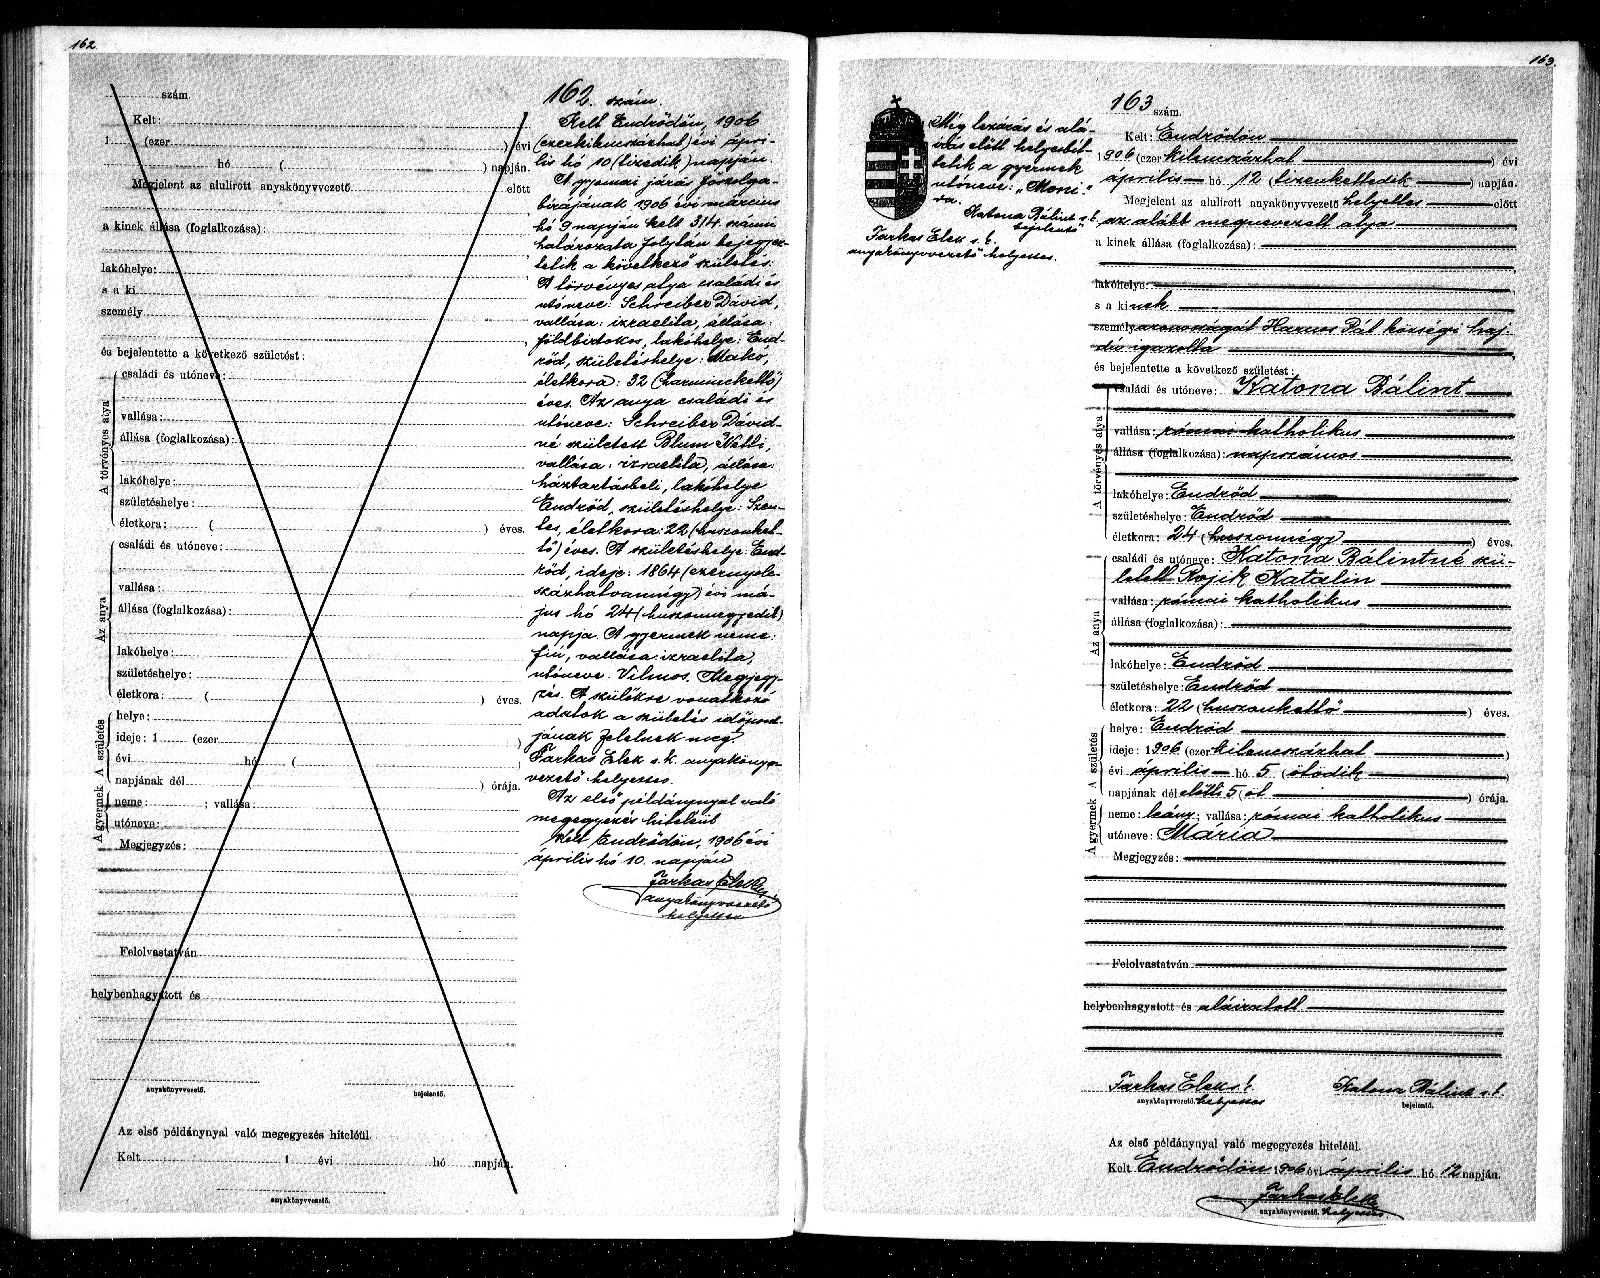 162
szám.
Kelt:
1 (ezer ) évi
hó ( ) napján.
Megjelent az alulirott anyakönyvvezető előtt
a kinek állása (foglalkozása):
lakóhelye:
s a ki
személy
és bejelentette a következő születést:
A törvényes atya
családi és utóneve:
vallása:
állása (foglalkozása):
lakóhelye:
születéshelye:
életkora: ( ) éves.
Az anya
családi és utóneve:
vallása:
állása (foglalkozása):
lakóhelye:
születéshelye:
életkora: ( ) éves.
A születés
helye:
ideje: 1 (ezer )
évi hó (
napjának dél ) órája.
A gyermek
neme: ; vallása:
utóneve:
Megjegyzés:
Felolvastatván
helybenhagyatott és
anyakönyvvezető. bejelentő.
Az első példánynyal való megegyezés hiteléül.
Kelt 1 évi hó napján.
anyakönyvvezető.
162. szám.
Kelt Endrődön, 1906
(ezerkilenczszázhat) évi ápri-
lis hó 10 (tizedik) napján.
A gyomai járás főszolga-
birájának 1906 évi március
hó 9 napján kelt 314. számú
határozata folytán bejegyez-
tetik a következő születés:
A törvényes atya családi és
utóneve: Schreiber Dávid,
vallása: izraelita, állása:
földbirtokos, lakóhelye: End-
rőd, születéshelye: Makó,
életkora: 32 (harminckettő)
éves. Az anya családi és
utóneve: Schreiber Dávid-
né született Blum Netti,
vallása: izraelita, állása:
háztartásbeli, lakóhelye
Endrőd, születéshelye: Szen-
tes, életkora: 22 (huszonket-
tő) éves. A születéshelye: End-
rőd, ideje: 1864 (ezernyolc-
százhatvannégy) évi má-
jus hó 24 (huszonnegyedik)
napja. A gyermek neme:
fiú, vallása izraelita,
utóneve: Vilmos. Megjegy-
zés. A szülőkre vonatkozó
adatok a születés időpont-
jának felelnek meg.
Farkas Elek s.k. anyakönyv-
vezető helyettes.
Az első példánynyal való
megegyezés hiteléül
Kelt Endrődön, 1906 évi
április hó 10. napján
Farkas Elek
anyakönyvvezető
helyettes
163.
Még lezárás és alá-
írás előtt helyesbít-
tetik a gyermek
utóneve: „Moni-
ka."
Katona Bálint s.k.
bejelentő
Farkas Elek s.k.
anyakönyvvezető helyettes.
163 szám.
Kelt: Endrődön
1906 (ezer kilenczszázhat ) évi
április hó 12 (tizenkettedik ) napján.
Megjelent az alulirott anyakönyvvezető helyettes előtt
az alább megnevezett atya
a kinek állása (foglalkozása):
lakóhelye:
s a kinek
személyazonosságát Harnos Pál községi haj-
dú igazolta
és bejelentette a következő születést:
A törvényes atya
családi és utóneve: Katona Bálint
vallása: római katholikus
állása (foglalkozása): napszámos
lakóhelye: Endrőd
születéshelye: Endrőd
életkora: 24 (huszonnégy ) éves.
Az anya
családi és utóneve: Katona Bálintné szü-
letett Rojik Katalin
vallása: római katholikus
állása (foglalkozása):
lakóhelye: Endrőd
születéshelye: Endrőd
életkora: 22 (huszonkettő ) éves.
A születés
helye: Endrőd
ideje: 1906 (ezer kilenczszázhat )
évi április hó 5 (ötödik )
napjának dél előtti 5 (öt ) órája.
A gyermek
neme: leány; vallása: római katholikus
utóneve: Mária
Megjegyzés:
Felolvastatván
helybenhagyatott és aláíratott
Farkas Elek s.k. Katona Bálint s.k.
anyakönyvvezető. helyettes bejelentő.
Az első példánynyal való megegyezés hiteléül.
Kelt Endrődön 1906 évi április hó 12 napján.
Farkas Elek
anyakönyvvezető. helyettes.